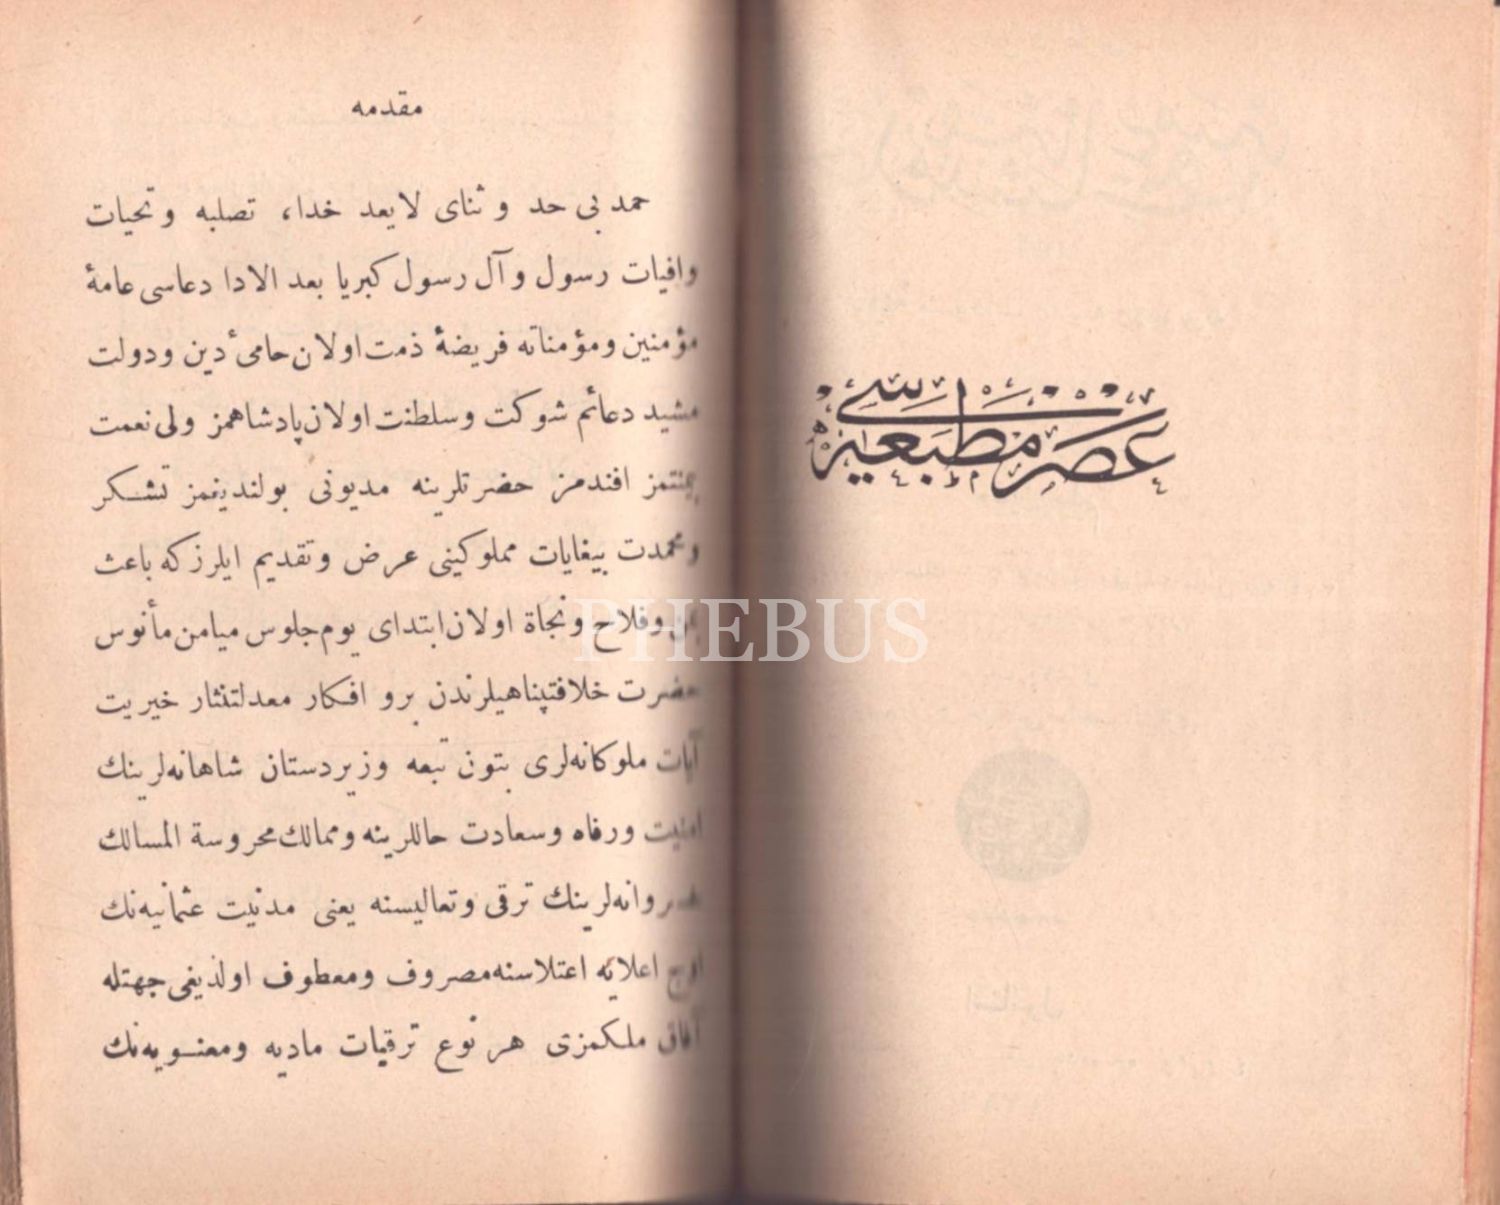 عصر مطبعه سی
مقدمه
حمد بی حد و ثنای لایعد خدا، تصلیه و تحیات
وافیات رسول و آل رسول کبریا بعد الادا دعاسی عامۀ
مؤمنین و مؤمناته فریضۀ ذمت اولان حامیٔ دین و دولت
مشید دعائم شوکت و سلطنت اولان پادشاهمز ولی نعمت
بیمنتمز افندمز حضرتلرینه مدیونی بولندیغمز تشکر
و محمدت بیغایات مملوکینی عرض و تقدیم ایلرز که باعث
و فلاح و نجاة اولان ابتدای یوم جلوس میامن مأنوس
حضرت خلافتپناهیلرندن برو افکار معدلتنثار خیریت
آیات ملوکانه‌لری بتون تبعه و زیردستان شاهانه‌لرینك
امنیت و رفاه و سعادت حاللرینه و ممالك محروسة المسالك
خسروانه‌لرینك ترقی و تعالیسنه یعنی مدنیت عثمانیه‌نك
اوج اعلایه اعتلاسنه مصروف و معطوف اولدیغی جهتله
آفاق ملکمزی هر نوع ترقیات مادیه و معنویه‌نك
PHEBUS